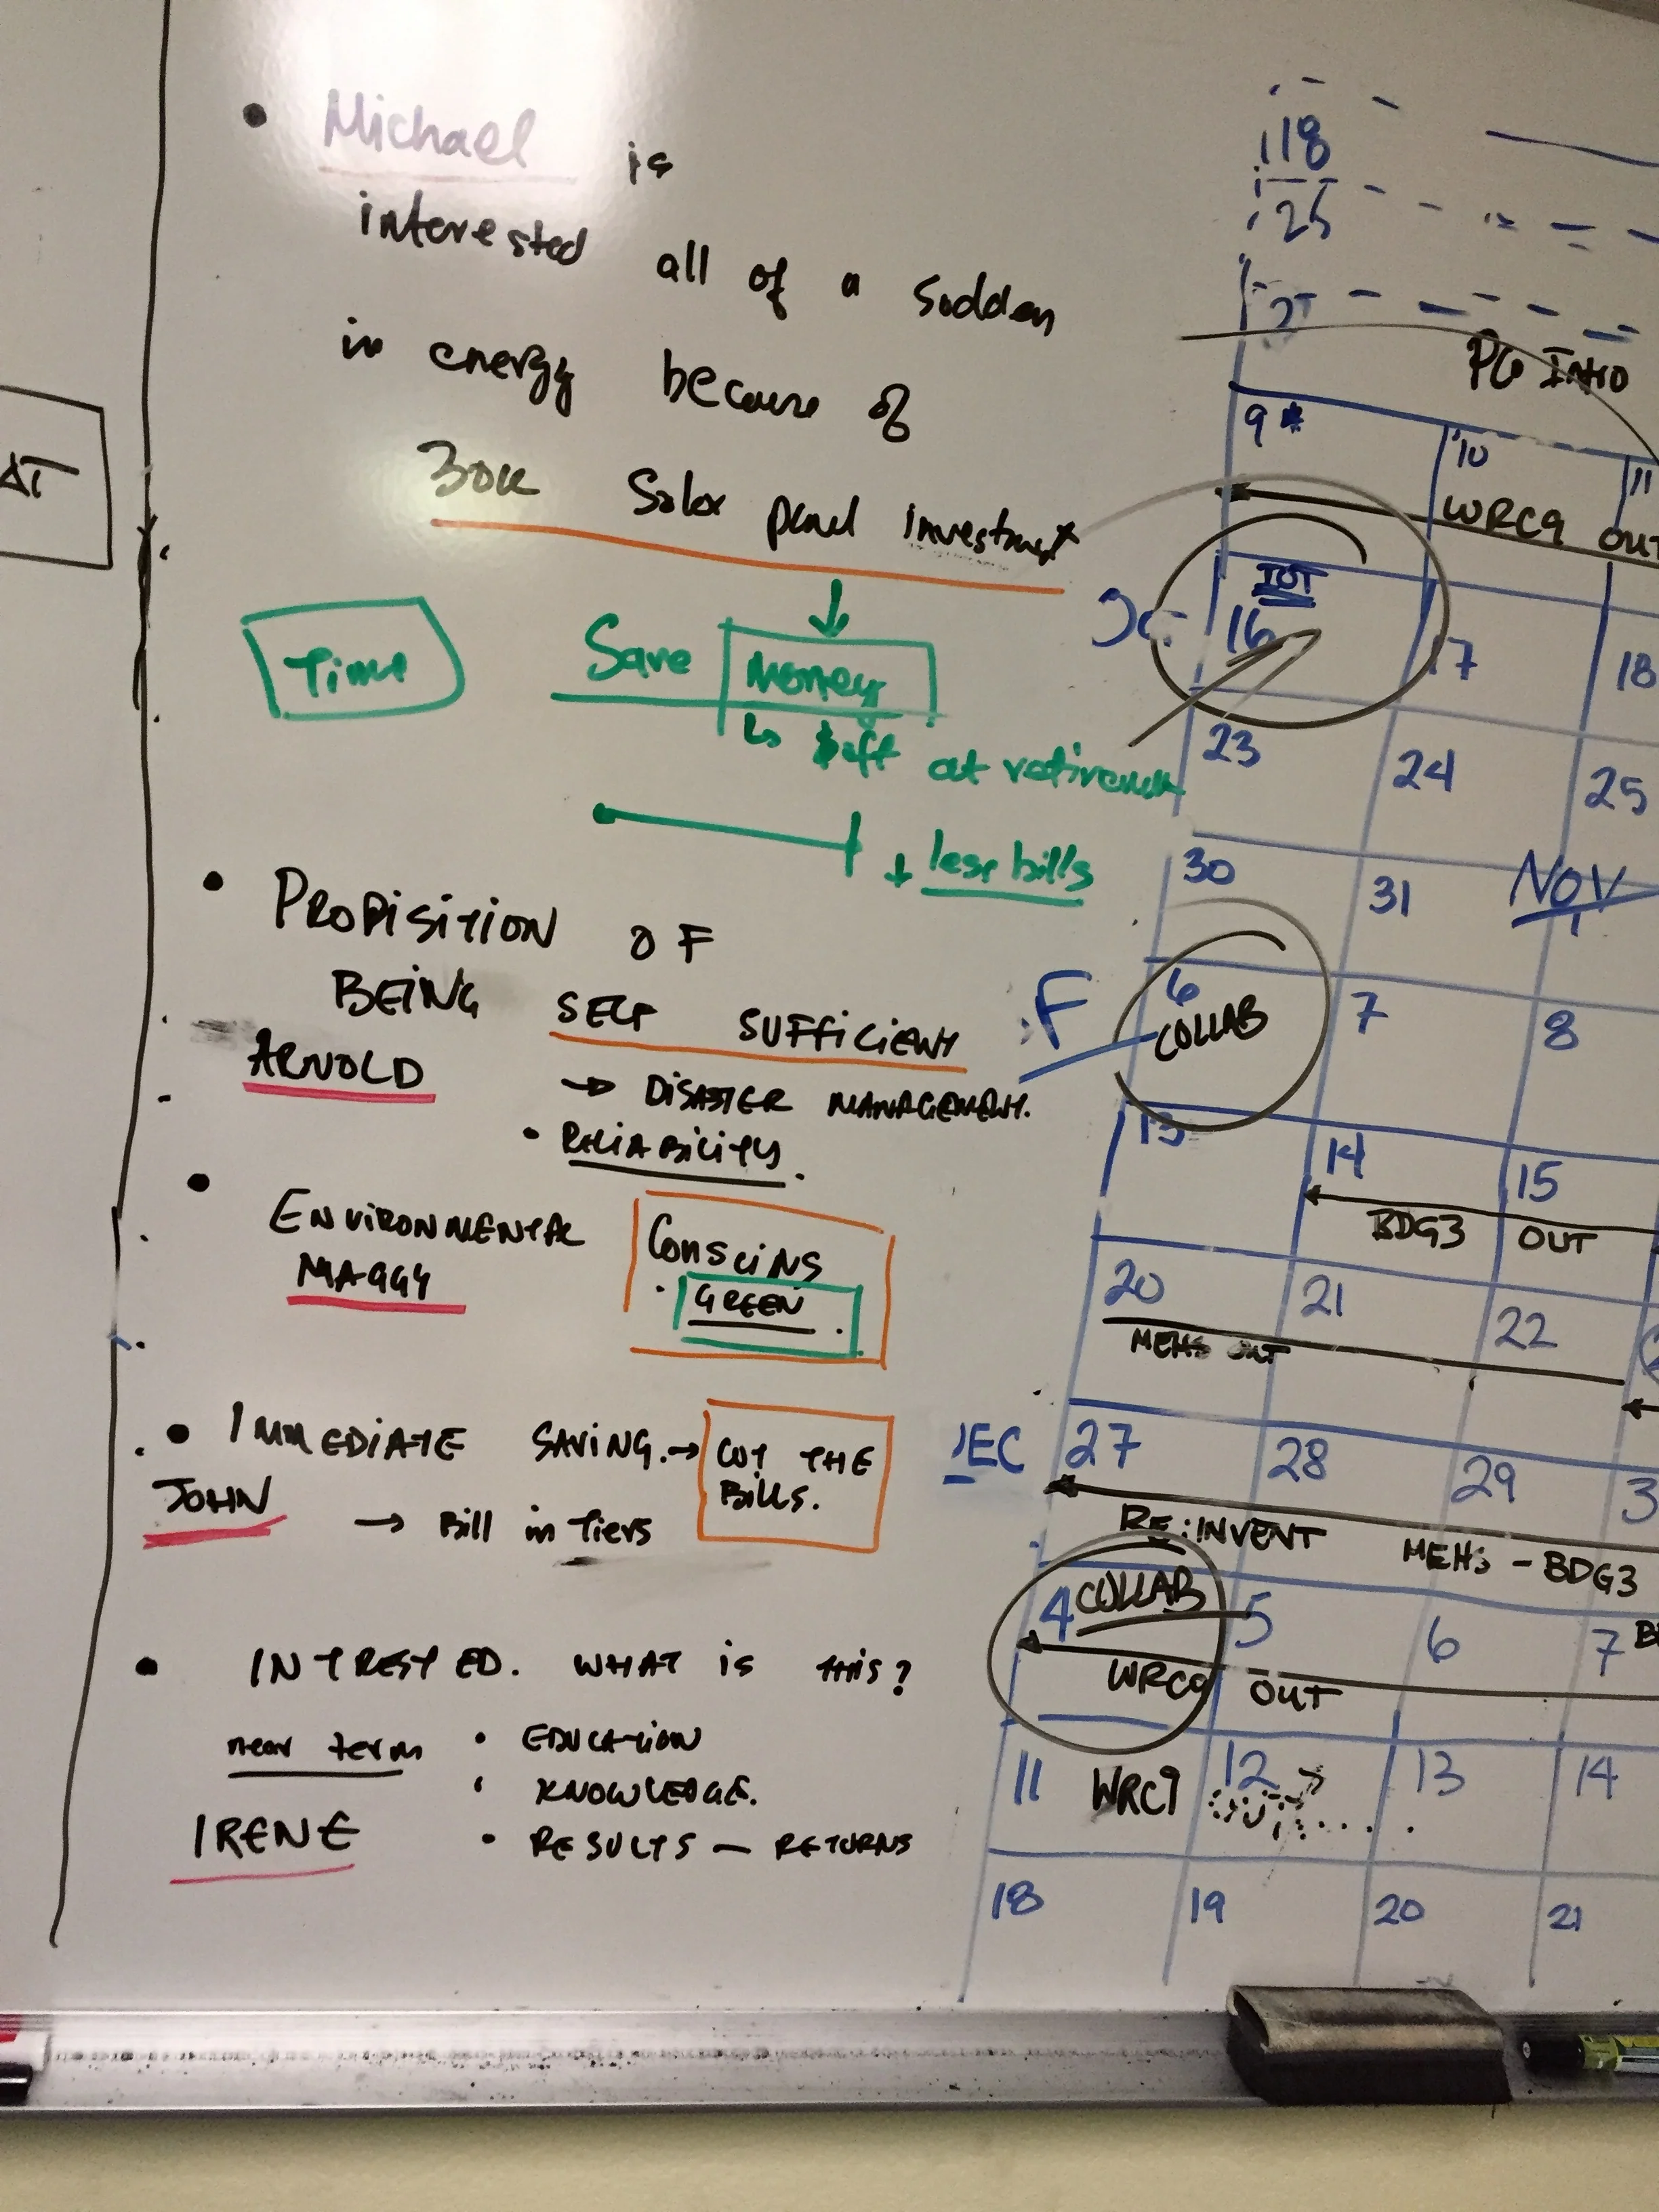 AT
• Michael is
interested all of a sudden
in energy because of
30K Solar panel investment
Time
Save Money
↳ at retirement
+ less bills
• PROPISITION OF
BEING SELF SUFFICIENT
ARNOLD
→ DISASTER MANAGEMENT.
• RELIABILITY.
• ENVIRONMENTAL
MAGGY
CONSCINS
GREEN
• IMMEDIATE SAVING. → CUT THE
BILLS.
JOHN
→ Bill in Tiers
• INTRESTED. WHAT is THIS?
near term
• EDUCATION
• KNOWLEDGE.
IRENE
• RESULTS — RETURNS
18
25
PG INTRO
9* 10 11
WRC9 OUT
IOT
16 17 18
23 24 25
30 31 NOV
1
F
6 7 8
COLLAB
13 14 15
BDG3 OUT
20 21 22
MEHS OUT
EC 27 28 29 3
RE:INVENT MEHS - BDG3
4 COLLAB 5 6 7
WRC9 OUT
11 WRC9 12 13 14
18 19 20 21